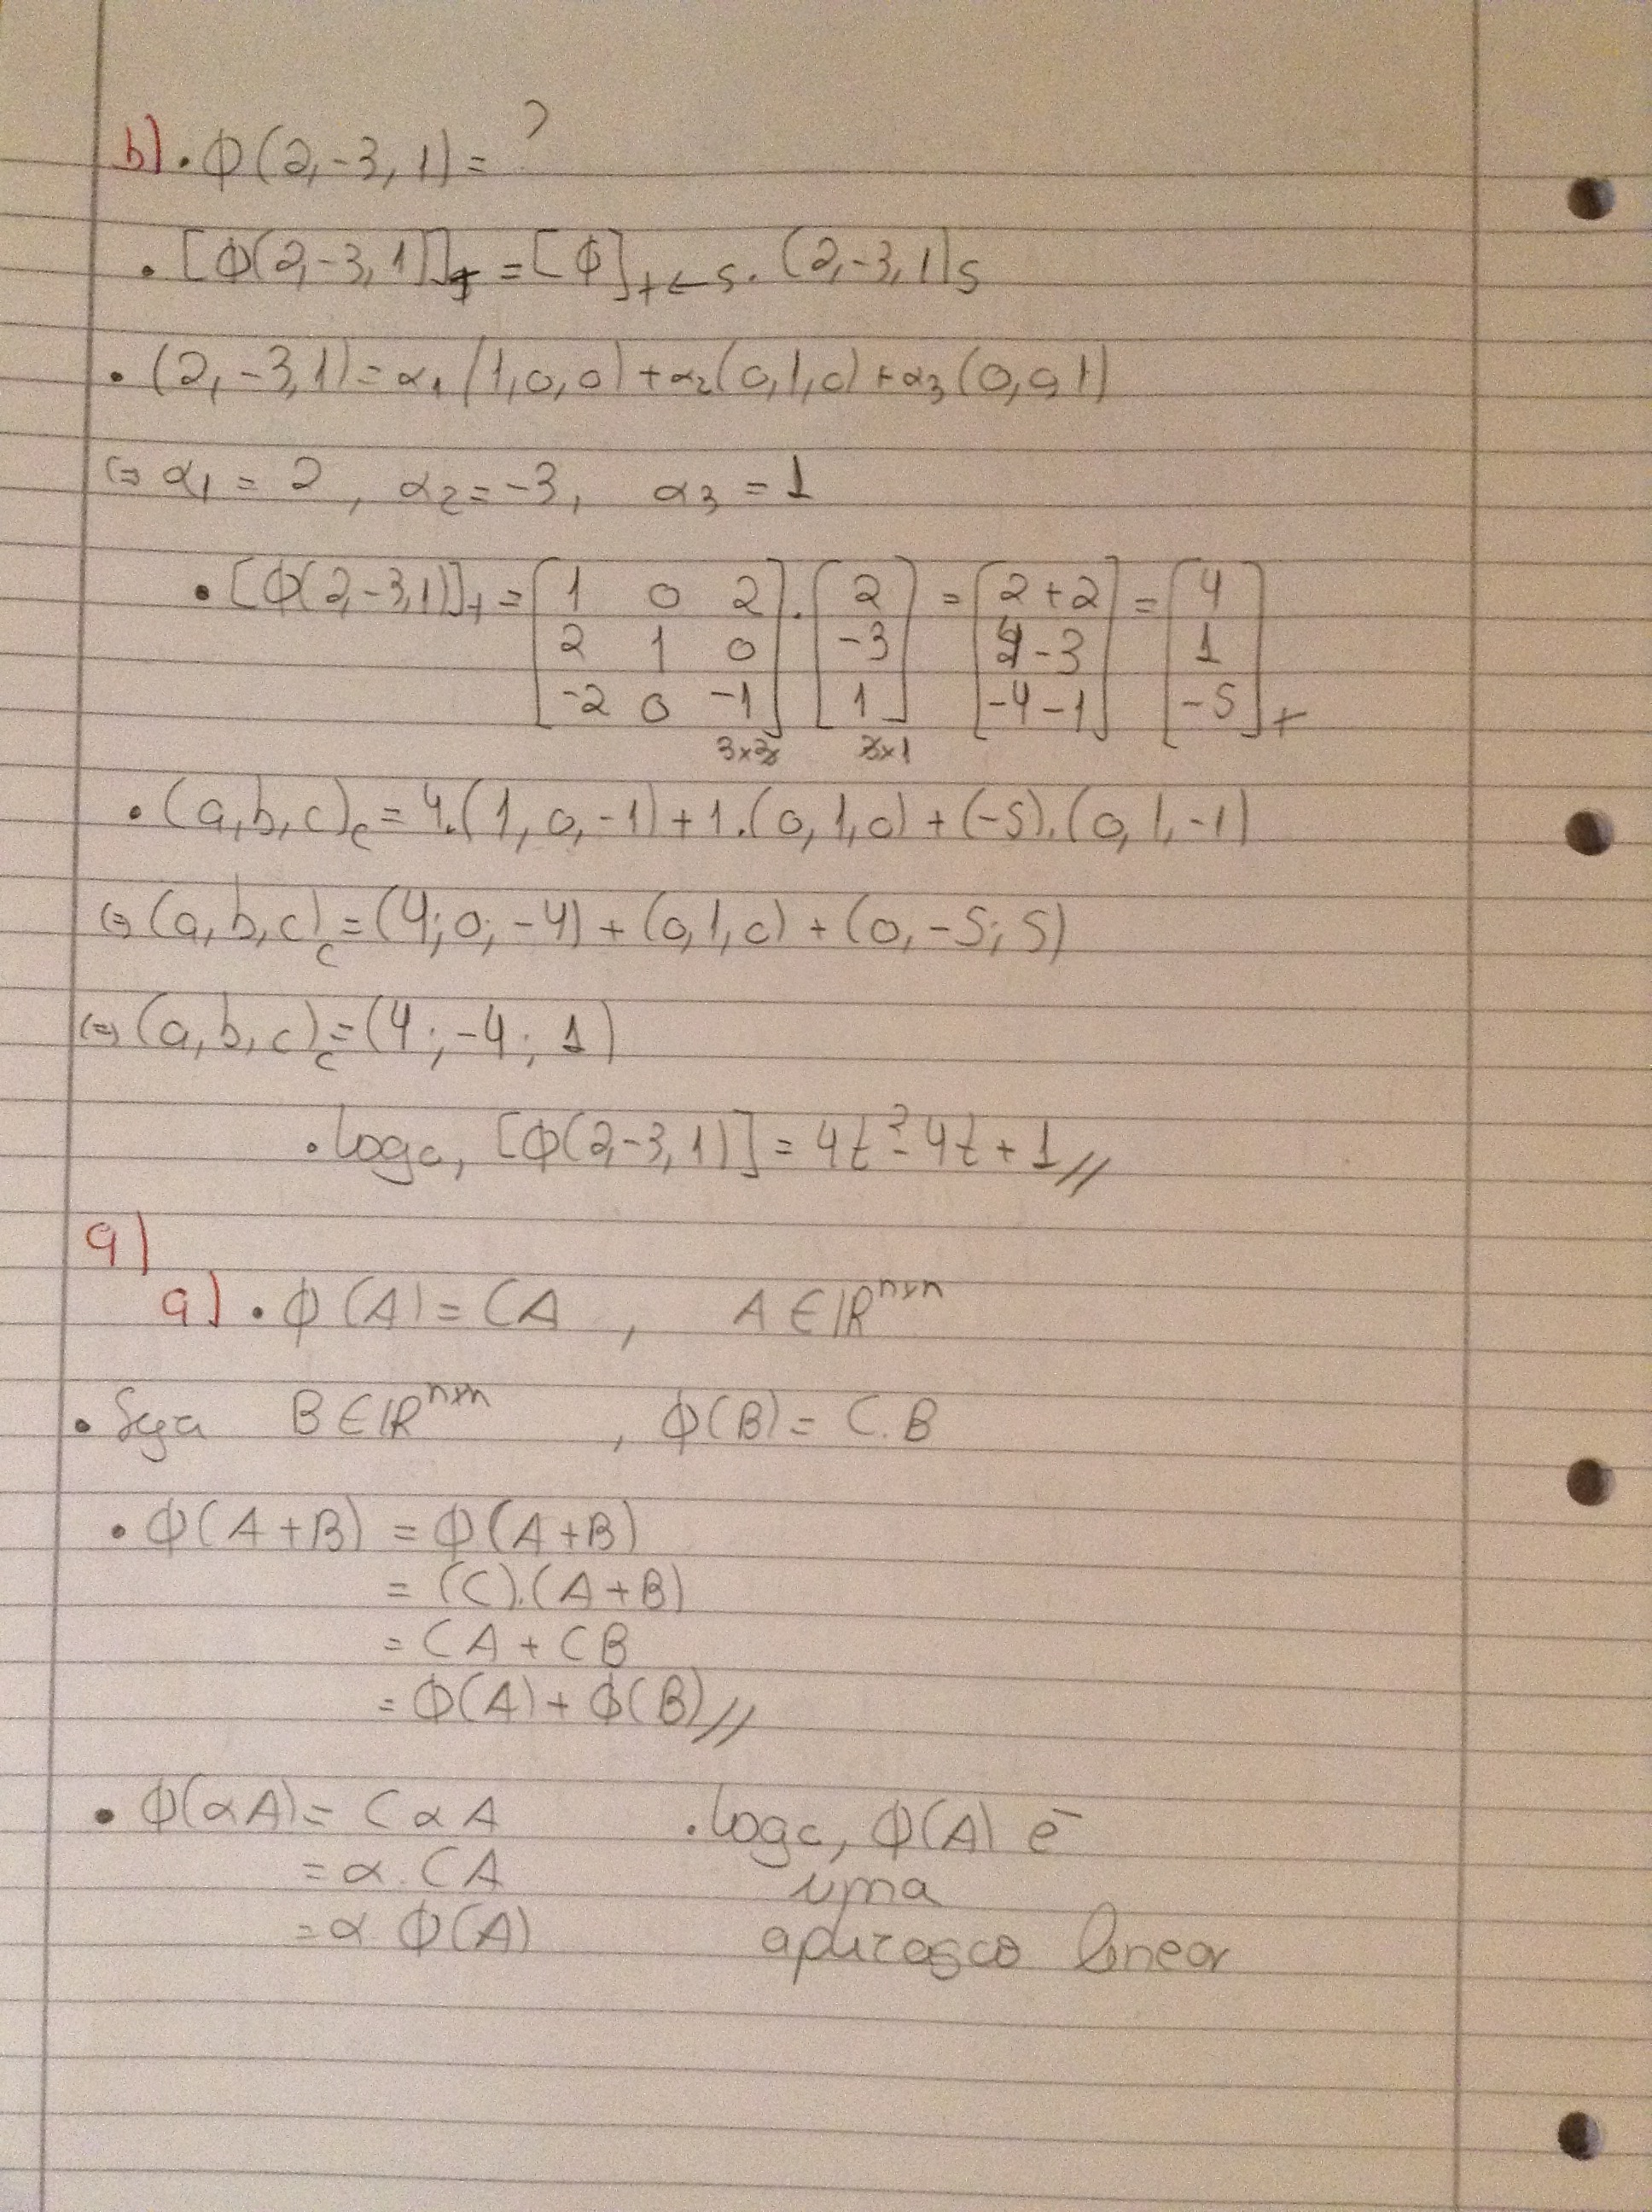 b) • ϕ(2,-3,1) = ?
• [ϕ(2,-3,1)]_T = [ϕ]_T←S . (2,-3,1)_S
• (2,-3,1) = α₁(1,0,0) + α₂(0,1,0) + α₃(0,0,1)
(=) α₁ = 2, α₂ = -3, α₃ = 1
• [ϕ(2,-3,1)]_T = [1 0 2; 2 1 0; -2 0 -1] . [2; -3; 1] = [2+2; 4-3; -4-1] = [4; 1; -5]_T
3x3 3x1
• (a,b,c)_c = 4.(1,0,-1) + 1.(0,1,0) + (-5).(0,1,-1)
(=) (a,b,c)_c = (4;0;-4) + (0,1,0) + (0,-5;5)
(=) (a,b,c)_c = (4;-4;1)
• logo, [ϕ(2,-3,1)] = 4t² - 4t + 1 //
9)
a) • ϕ(A) = CA , A ∈ ℝⁿˣⁿ
• Seja B ∈ ℝⁿˣⁿ , ϕ(B) = C.B
• ϕ(A+B) = ϕ(A+B)
= (C).(A+B)
= CA + CB
= ϕ(A) + ϕ(B) //
• ϕ(αA) = CαA • logo, ϕ(A) é
= α.CA uma
= α ϕ(A) aplicação linear